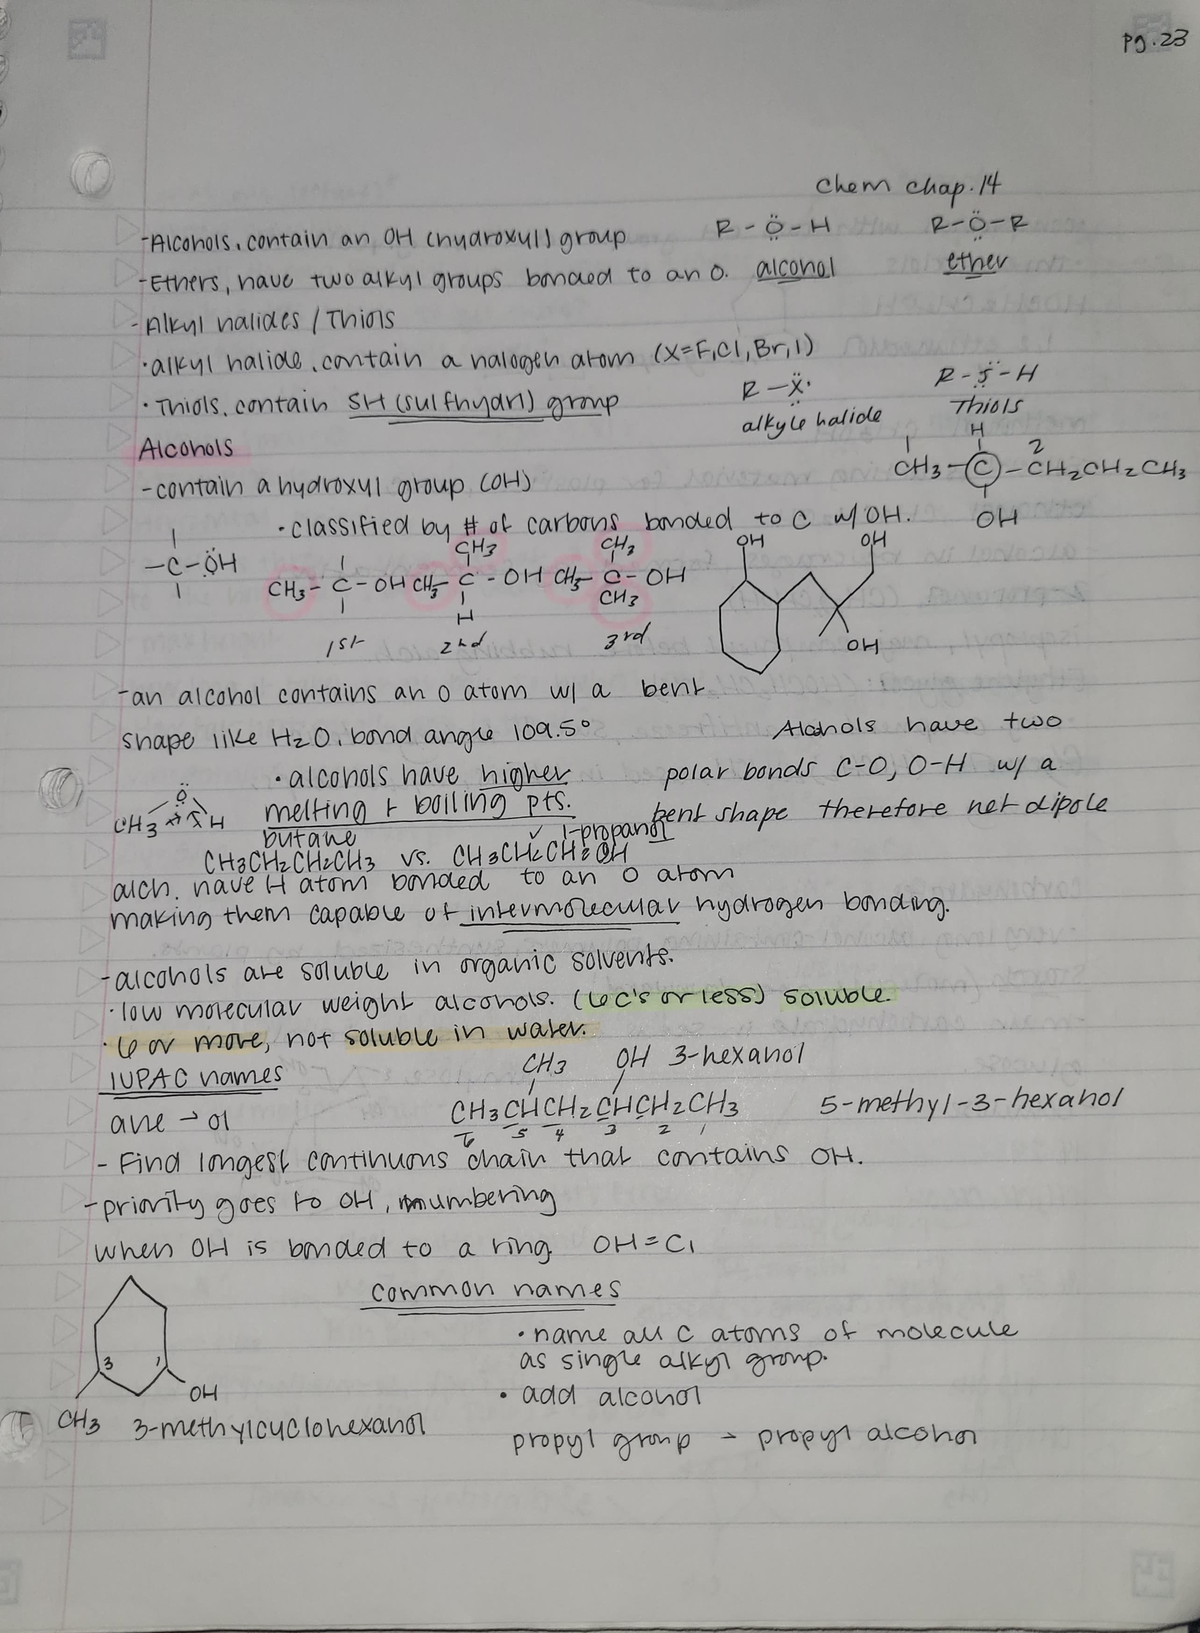 pg.23
Chem chap.14
-Alcohols, contain an OH (hydroxyl) group
R-Ö-H
R-Ö-R
-Ethers, have two alkyl groups bonded to an O.
alcohol
ether
-Alkyl halides / Thiols
·alkyl halide, contain a halogen atom (X=F,Cl,Br,I)
R-X
R-S-H
·Thiols, contain SH (sulfhydrl) group
alkyle halide
Thiols
Alcohols
H
1
2
CH3-C-CH2CH2CH3
OH
-contain a hydroxyl group (OH)
·classified by # of carbons bonded to C w/OH.
-C-ÖH
CH3-C-OH
CH3
CH3-C-OH
H
CH3
CH3-C-OH
CH3
OH
OH
OH
1st
2nd
3rd
-an alcohol contains an O atom w/ a bent
shape like H2O, bond angle 109.5°
Alcohols have two
polar bonds C-O, O-H w/ a
bent shape therefore net dipole
·alcohols have higher
melting + boiling pts.
Ö
CH3
H
butane
✓ 1-propanol
CH3CH2CH2CH3 vs. CH3CH2CH2OH
alch. have H atom bonded to an O atom
making them capable of intermolecular hydrogen bonding.
-alcohols are soluble in organic solvents.
·low molecular weight alcohols. (6 C's or less) soluble.
·6 or more, not soluble in water.
IUPAC names
CH3
OH
3-hexanol
ane → ol
CH3CHCH2CHCH2CH3
6 5 4 3 2 1
5-methyl-3-hexanol
- Find longest continuous chain that contains OH.
-priority goes to OH, numbering
when OH is bonded to a ring OH=C1
common names
·name all C atoms of molecule
as single alkyl group.
·add alcohol
propyl group → propyl alcohol
3
1
OH
CH3
3-methylcyclohexanol